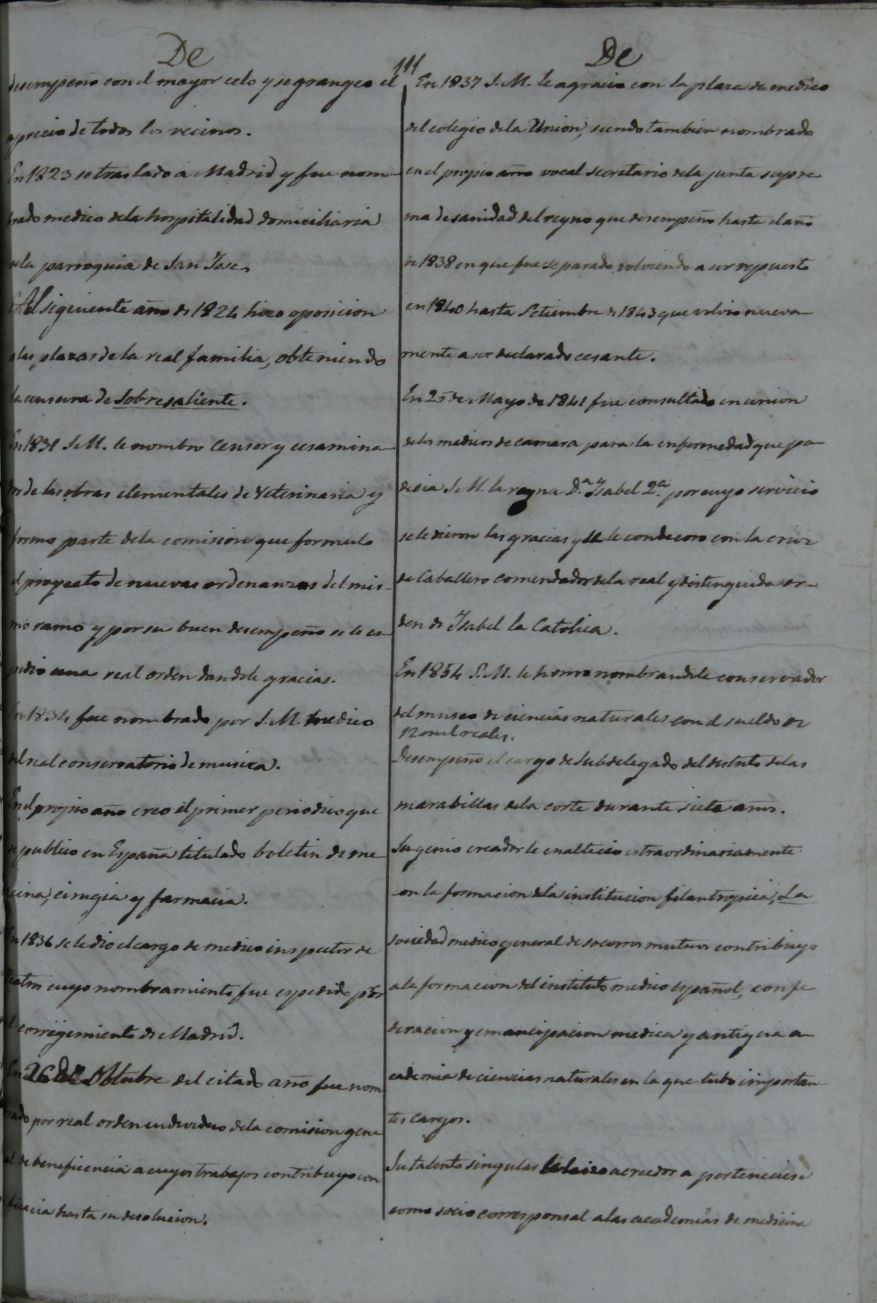 De
111
De
desempeño con el mayor celo y se grangeo el
aprecio de todos los vecinos.
En 1823 se traslado a Madrid y fue nom-
brado medico de la hospitalidad domiciliaria
de la parroquia de San Jose.
Al siguiente año de 1824 hizo oposicion
a las plazas de la real familia, obteniendo
la censura de Sobresaliente.
En 1831 S.M. le nombro Censor y ecsamina-
dor de las obras elementales de Veterinaria y
formo parte de la comision que formulo
el proyecto de nuevas ordenanzas del mis-
mo ramo y por su buen desempeño se le es-
pidio una real orden dandole gracias.
En 1834 fue nombrado por S.M. medico
del real conservatorio de musica.
En el propio año creo el primer periodico que
se publico en España titulado boletin de me-
dicina, cirugia y farmacia.
En 1836 se le dio el cargo de medico inspector de
teatros cuyo nombramiento fue espedido por
el corregimiento de Madrid.
En 26 de Obtubre del citado año fue nom
brado por real orden individuo de la comision gene
ral de beneficencia a cuyos trabajos contribuyo con
eficacia hasta su desolucion.
En 1837 S.M. le agracio con la plaza de medico
del colegio de la Union, siendo tambien nombrado
en el propio año vocal secretario de la junta supre-
ma de sanidad del reyno que desempeño hasta el año
de 1838 en que fue separado, volviendo a ser repuesto
en 1840 hasta Setiembre de 1843 que volvio nueva-
mente a ser declarado cesante.
En 25 de Mayo de 1841 fue consultado en union
de los medicos de camara para la enfermedad que pa-
decia S.M. la reyna D.ª Isabel 2.ª por cuyo servicio
se le dieron las gracias y se le condecoro con la cruz
de Caballero comendador de la real y distinguida or-
den de Isabel la Catolica.
En 1854 S.M. le honro nombrandole conservador
del museo de ciencias naturales con el sueldo de
12 o mil reales.
Desempeño el cargo de Subdelegado del distrito de las
marabillas de la corte durante siete años.
Su genio creador le enaltecio estraordinariamente
en la formacion de la institucion filantropica, La
sociedad medico general de socorros mutuos contribuyo
a la formacion del instituto medico español, confe
deracion y emancipacion medica y antigua a-
cademia de ciencias naturales en la que tubo importan
tes cargos.
Su talento singular le hizo acreedor a pertenecer
como socio corresponsal a las academias de medicina